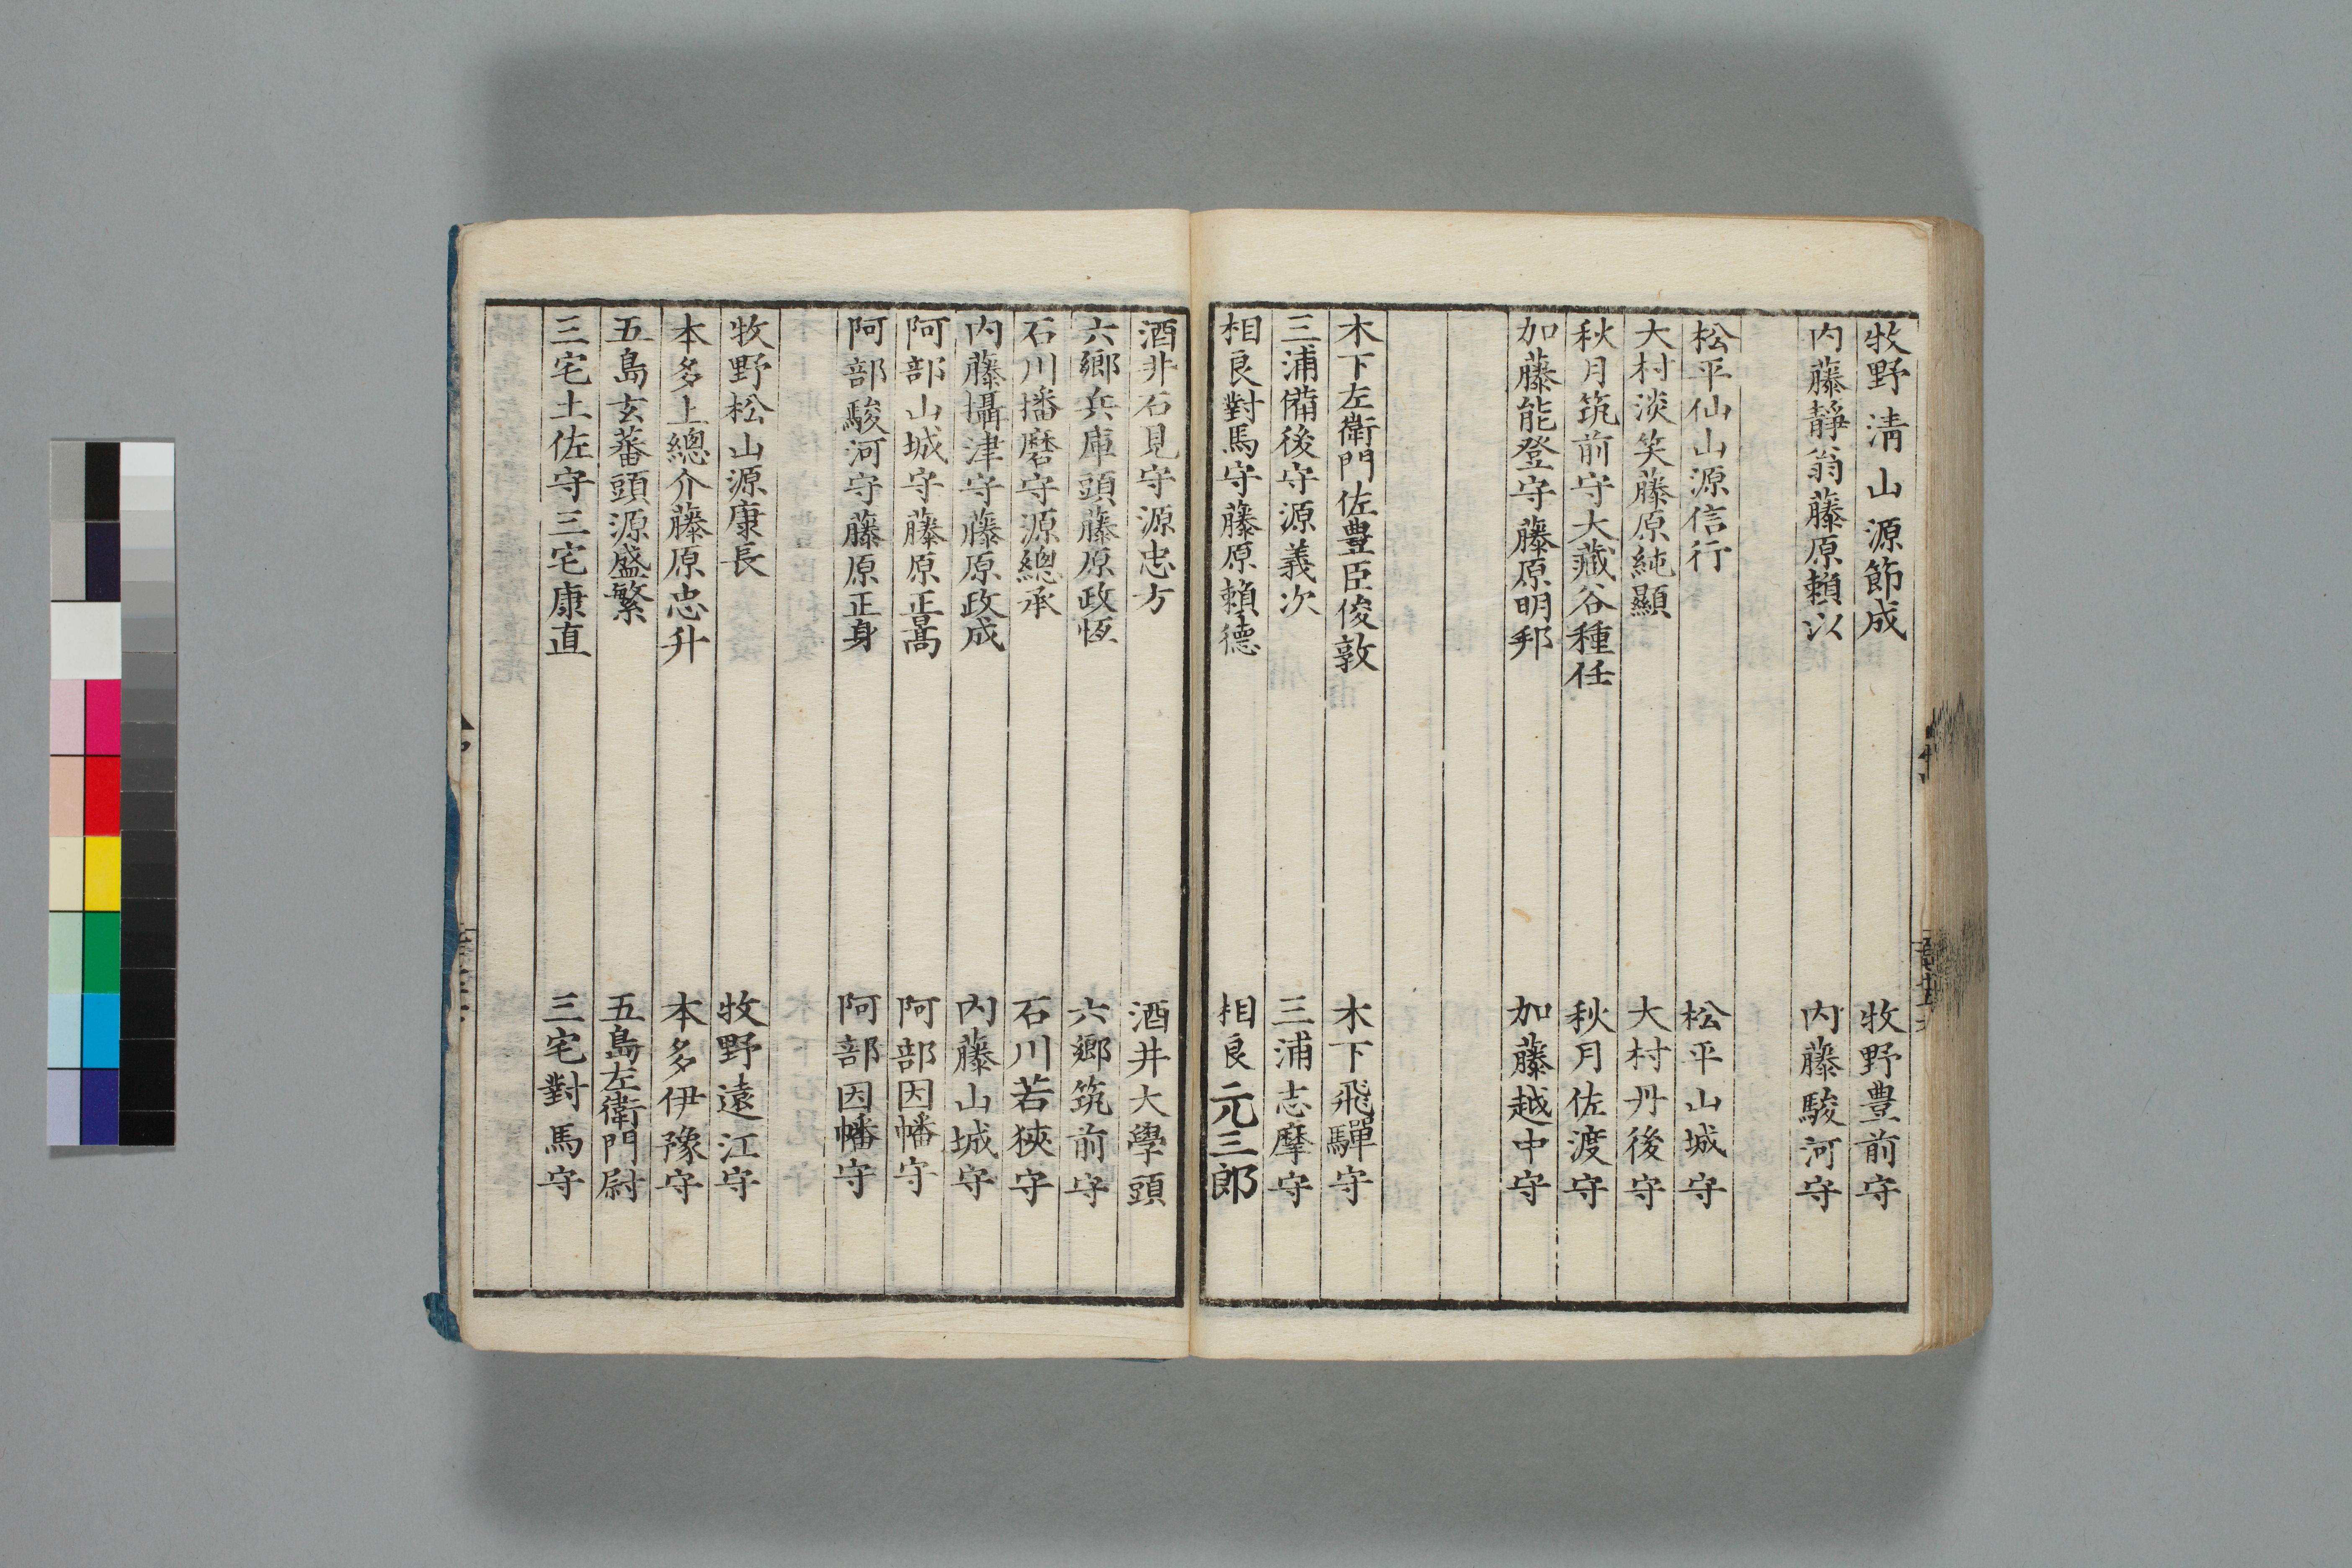 牧野淸山源節成　牧野豊前守
内藤靜翁藤原賴以　内藤駿河守
松平仙山源信行　松平山城守
大村淡笑藤原純顯　大村丹後守
秋月筑前守大藏谷種任　秋月佐渡守
加藤能登守藤原明邦　加藤越中守
木下左衛門佐豊臣俊敦　木下飛驒守
三浦備後守源義次　三浦志摩守
相良對馬守藤原賴德　相良元三郎
酒井石見守源忠方　酒井大學頭
六鄉兵庫頭藤原政恆　六鄉筑前守
石川播磨守源總承　石川若狹守
内藤攝津守藤原政成　内藤山城守
阿部山城守藤原正暠　阿部因幡守
阿部駿河守藤原正身　阿部因幡守
牧野松山源康長　牧野遠江守
本多上總介藤原忠升　本多伊豫守
五島玄蕃頭源盛繁　五島左衛門尉
三宅土佐守三宅康直　三宅對馬守